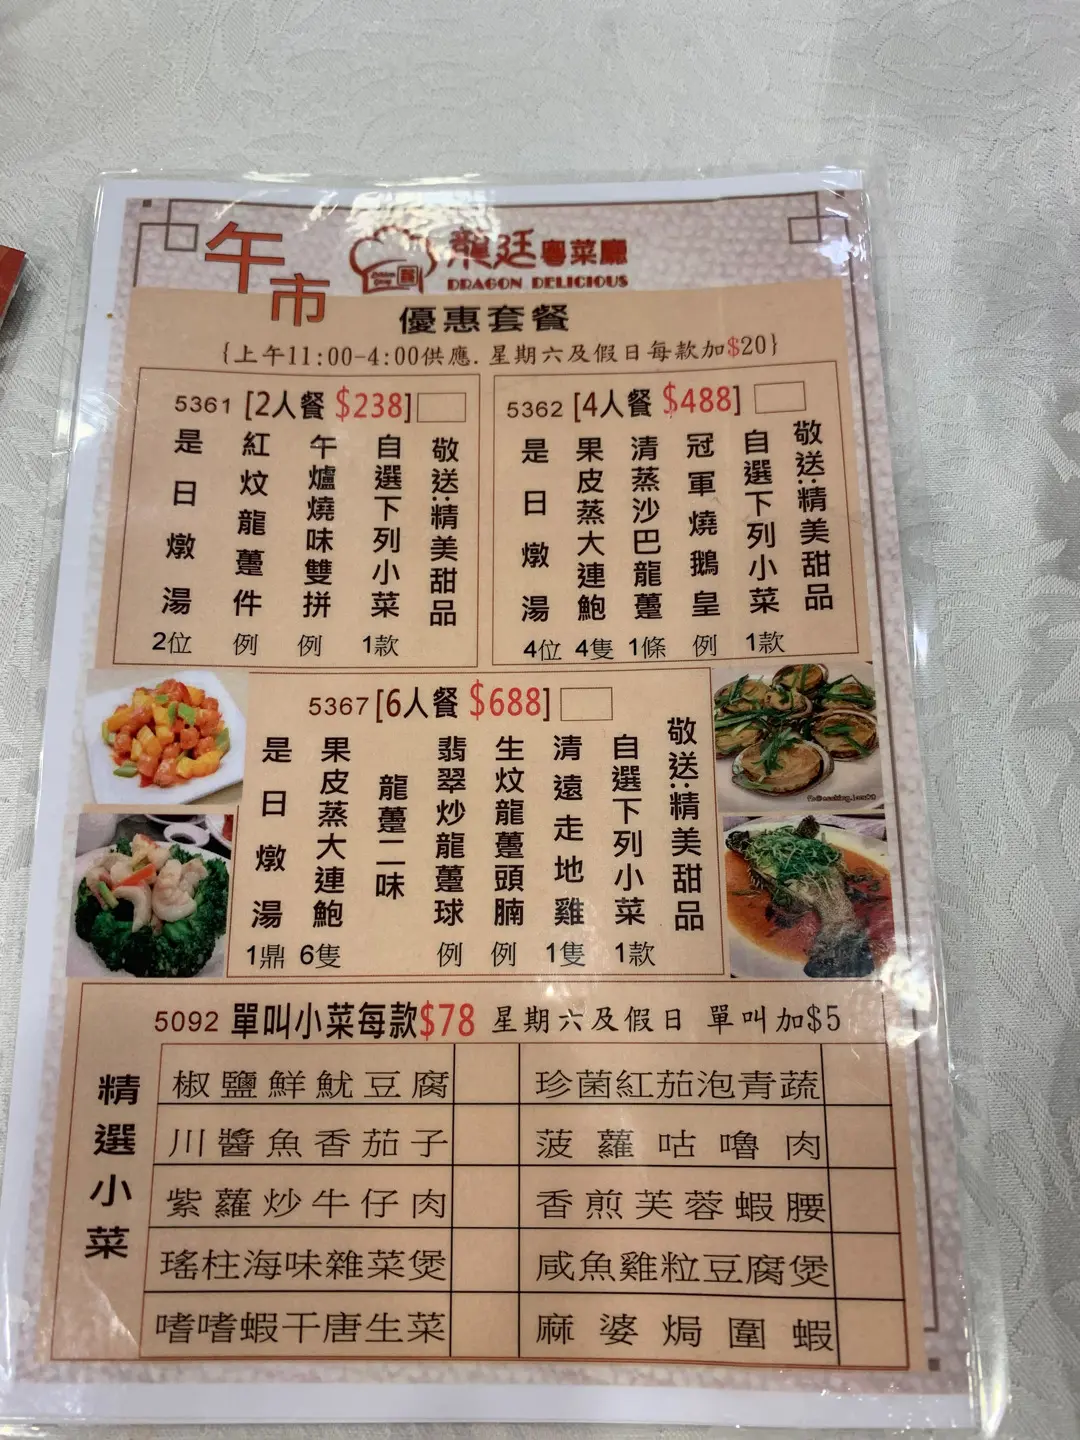 午市
龍廷粵菜廳
DRAGON DELICIOUS
優惠套餐
{上午11:00-4:00供應.星期六及假日每款加$20}
5361 [2人餐 $238]
是日燉湯 2位
紅炆龍躉件 例
午爐燒味雙拼 例
自選下列小菜 1款
敬送:精美甜品
5362 [4人餐 $488]
是日燉湯 4位
果皮蒸大連鮑 4隻
清蒸沙巴龍躉 1條
冠軍燒鵝皇 例
自選下列小菜 1款
敬送:精美甜品
5367 [6人餐 $688]
是日燉湯 1鼎
果皮蒸大連鮑 6隻
龍躉二味
翡翠炒龍躉球 例
生炆龍躉頭腩 例
清遠走地雞 1隻
自選下列小菜 1款
敬送:精美甜品
5092 單叫小菜每款$78 星期六及假日 單叫加$5
精選小菜
椒鹽鮮魷豆腐
珍菌紅茄泡青蔬
川醬魚香茄子
菠蘿咕嚕肉
紫蘿炒牛仔肉
香煎芙蓉蝦腰
瑤柱海味雜菜煲
咸魚雞粒豆腐煲
嗜嗜蝦干唐生菜
麻婆焗圍蝦